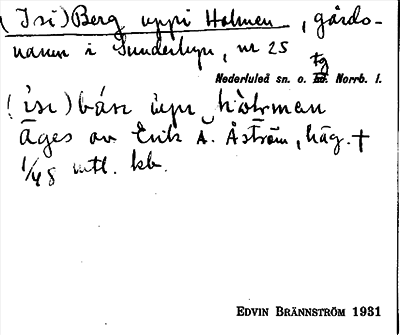 (Isi) Berg uppi Holmen, gårds-
namn i Sunderbyn, nr 25
tg
Nederluleå sn. o. hd. Norrb. l.
(isi) bär upi hòlrman
Äges av Erik A. Åström, häg. †
1/48 mtl. kb.
EDVIN BRÄNNSTRÖM 1931